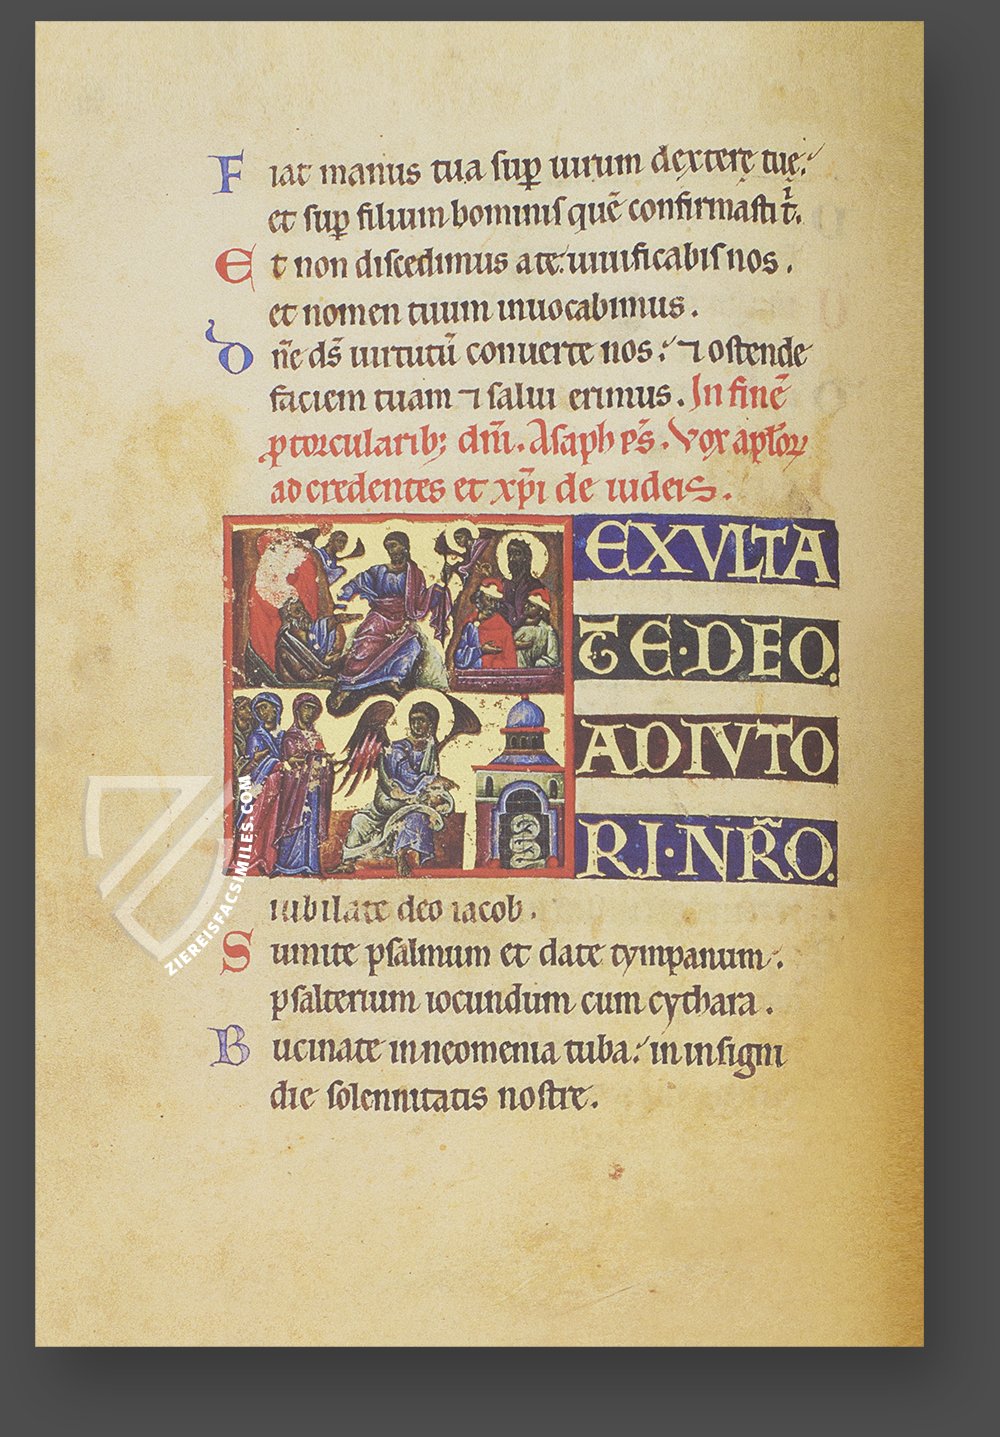 Fiat manus tua sup̲ uirum dexterę tuę.
et sup̲ filium hominis quē confirmasti t̕.
Et non discedimus a te: uiuificabis nos.
et nomen tuum inuocabimus.
Dn̄e ds̄ uirtutū conuerte nos: ⁊ ostende
faciem tuam ⁊ salui erimus. In finē
p̲ torcularib; dn̄i. Asaph ps̄. Vox apl̄oꝝ
ad credentes et xp̄i de iudeis.
EXVLTA
TE·DEO.
ADIVTO
RI·NR̄O.
iubilate deo iacob.
Sumite psalmum et date tympanum.
psalterium iocundum cum cythara.
Bucinate in neomenia tuba: in insigni
die solennitatis nostre.
ZIEREISFACSIMILES.COM